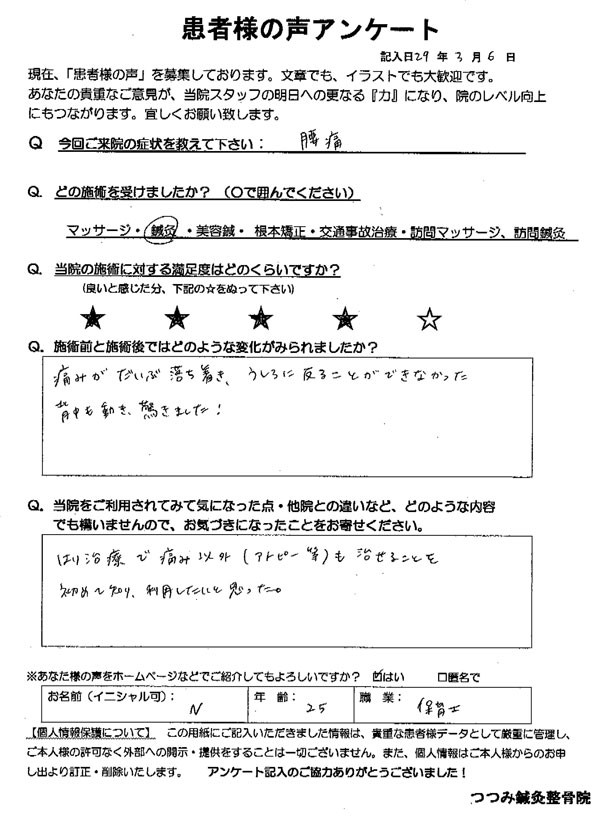 患者様の声アンケート
記入日29年3月6日
現在、「患者様の声」を募集しております。文章でも、イラストでも大歓迎です。
あなたの貴重なご意見が、当院スタッフの明日への更なる『力』になり、院のレベル向上
にもつながります。宜しくお願い致します。
Q 今回ご来院の症状を教えて下さい： 腰痛
Q. どの施術を受けましたか？（〇で囲んでください）
マッサージ・鍼灸・美容鍼・根本矯正・交通事故治療・訪問マッサージ、訪問鍼灸
Q. 当院の施術に対する満足度はどのくらいですか？
（良いと感じた分、下記の☆をぬって下さい）
★ ★ ★ ★ ☆
Q. 施術前と施術後ではどのような変化がみられましたか？
痛みがだいぶ落ち着き、うしろに反ることができなかった
背中も動き、驚きました！
Q. 当院をご利用されてみて気になった点・他院との違いなど、どのような内容
でも構いませんので、お気づきになったことをお寄せください。
はり治療で痛み以外（アトピー等）も治せることを
初めて知り、利用したいと思った。
※あなた様の声をホームページなどでご紹介してもよろしいですか？ ☑はい □匿名で
お名前（イニシャル可）： N 年齢： 25 職業： 保育士
【個人情報保護について】 この用紙にご記入いただきました情報は、貴重な患者様データとして厳重に管理し、
ご本人様の許可なく外部への開示・提供をすることは一切ございません。また、個人情報はご本人様からのお申
し出より訂正・削除いたします。 アンケート記入のご協力ありがとうございました！
つつみ鍼灸整骨院